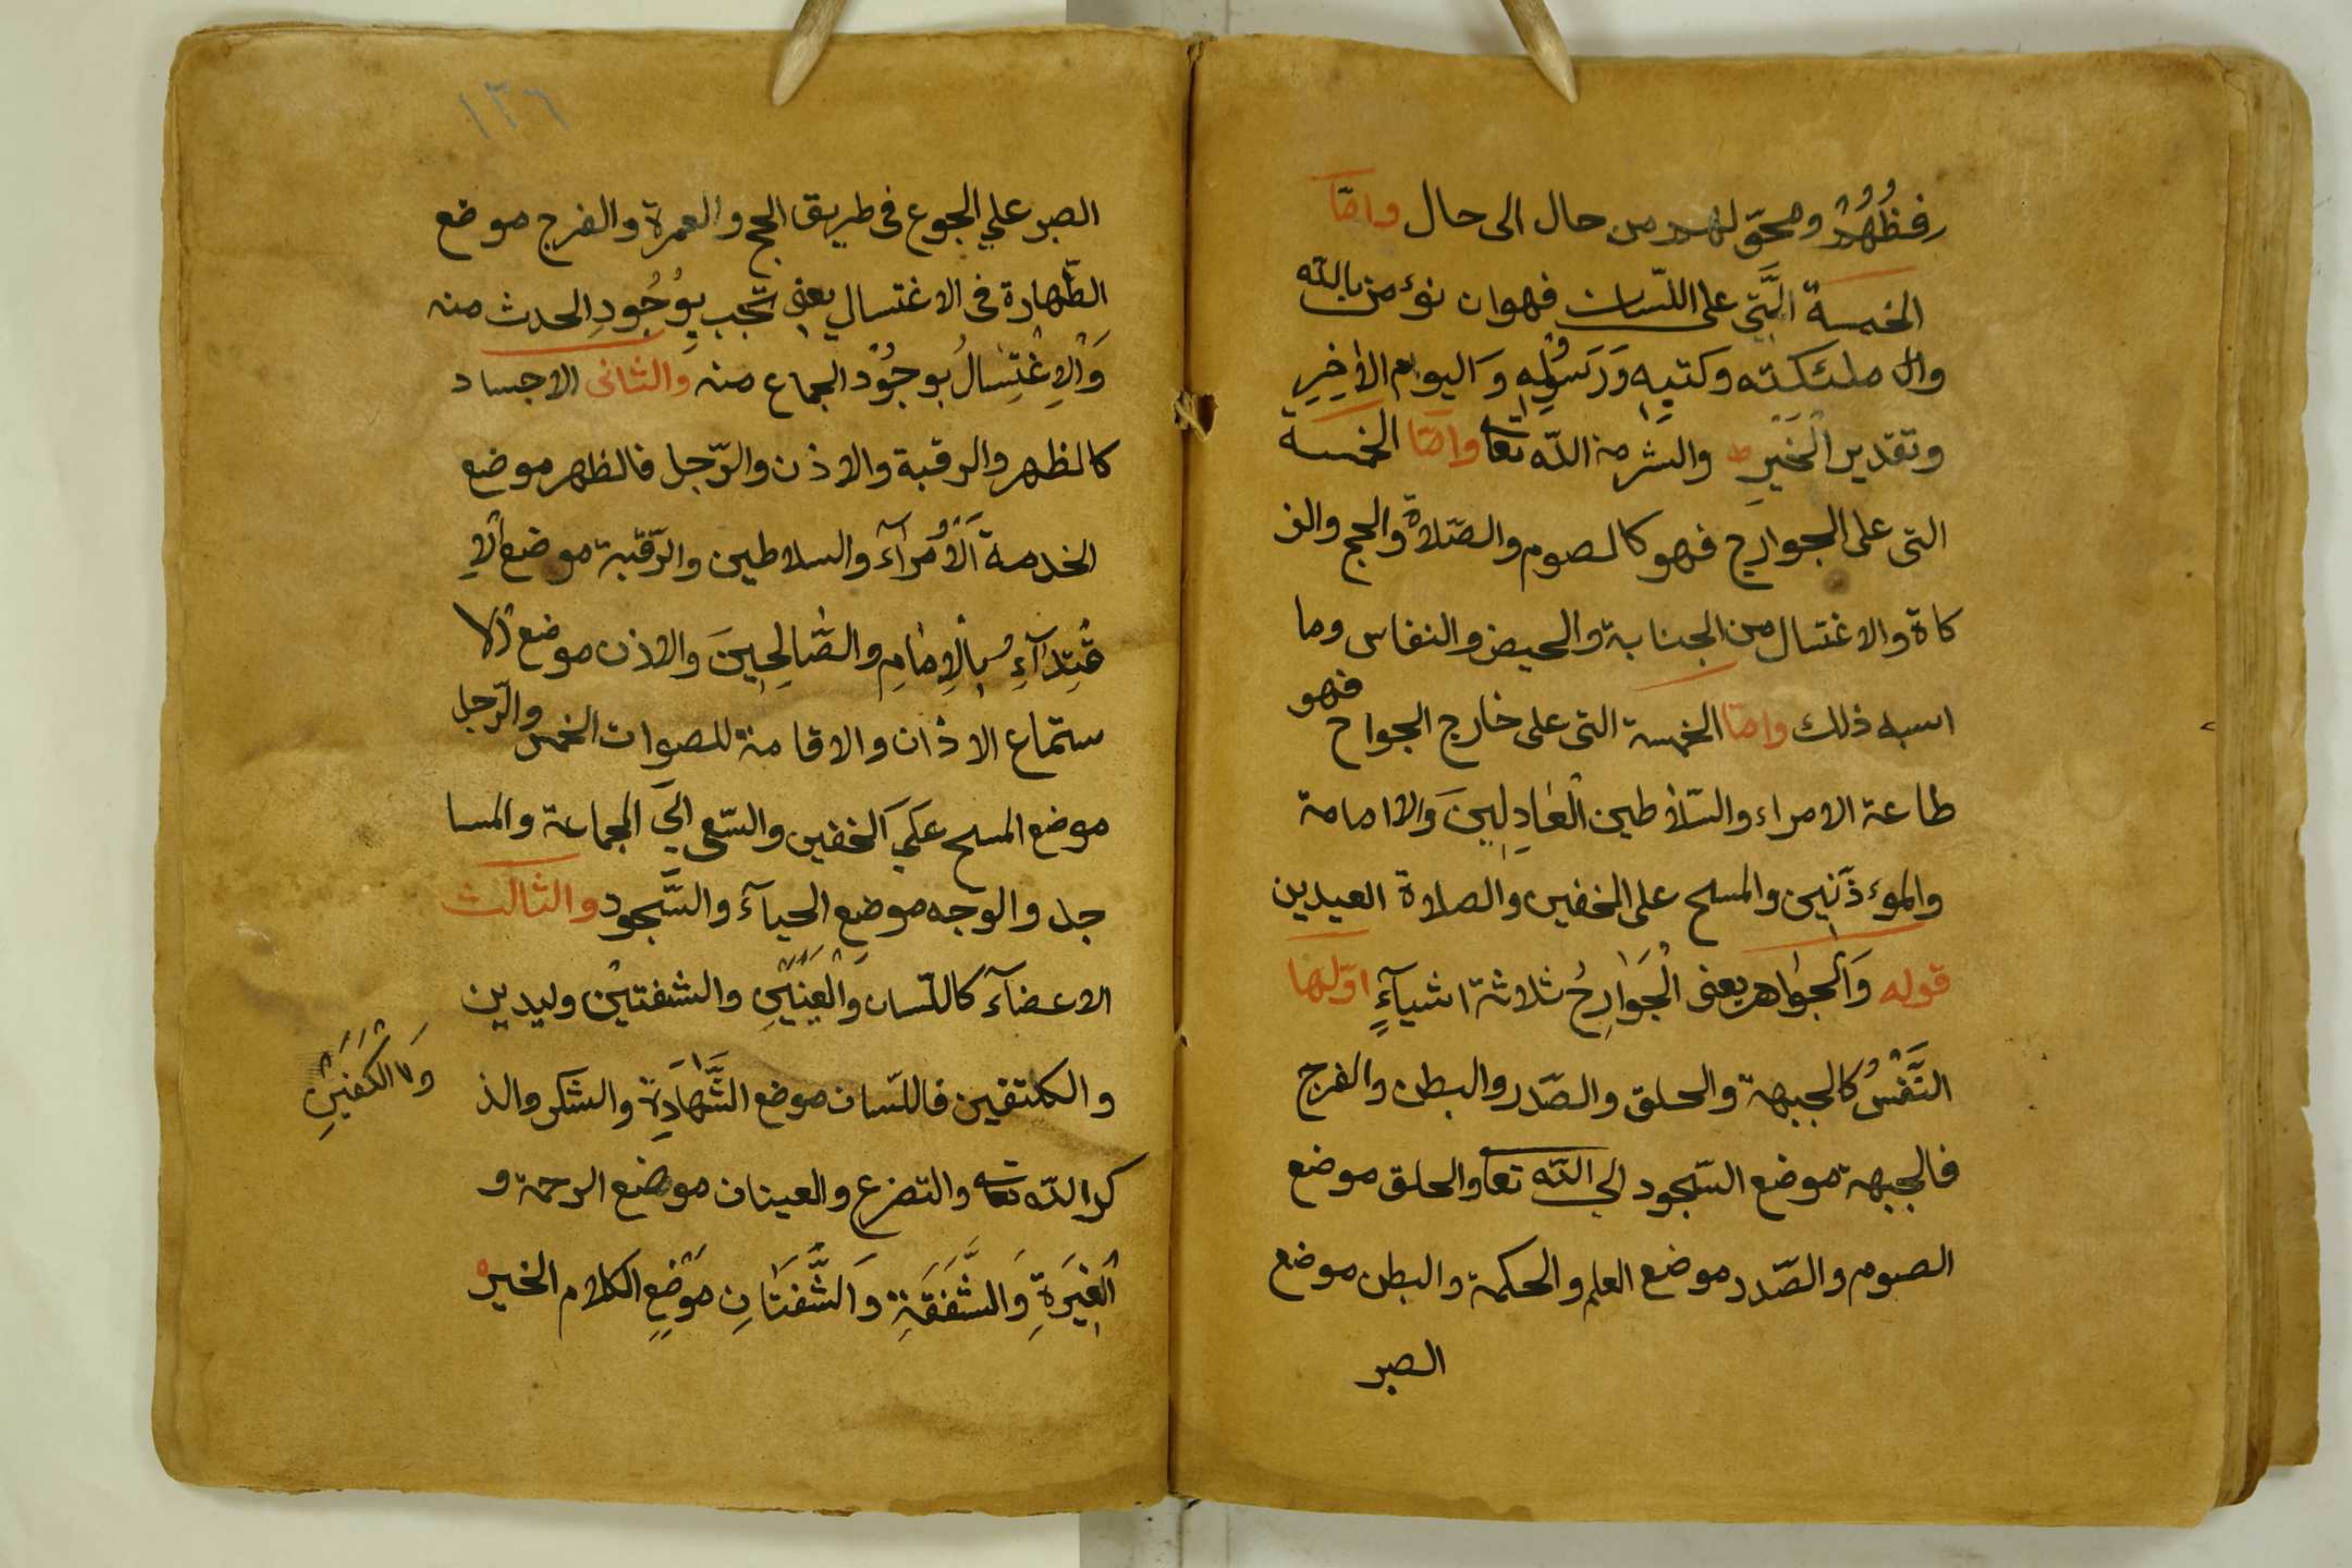 رفظُهُمْ ومحوّ لهم من حال الى حال وامّا
الخمسة الَّتي على اللسان فهوان نوء من بالله
وال ملئكته وكتبِه وَرَسُولِه وَاليوم الأخِرِ
وتقدير الْخَيرِ والشر من الله تعا وامّا الخمسة
التى على الجوارح فهو كالصوم والصّلاة والحج والز
كاة والاغتسال من الجنابة والحيض والنفاس وما
اسبه ذلك وامّا الخمسة التى على خارج الجواح فهو
طاعة الامراء والسّلاطين الْعَادِلِينَ وَالامامة
والموء ذّنين والمسح على الخفين والصلاة العيدين
قوله وَالْجواهر يعنى الْجَوَارِحُ ثلاثة اشيآءٍ اوّلها
النَّفْسُ كالجبهة والحلق والصّدر والبطن والفرج
فالجبهة موضع السّجود الي الله تعا والحلق موضع
الصوم والصّدر موضع العلم والحكمة والبطن موضع
الصبر
١٣٦
الصبر علي الجوع فى طريق الحج والعمرة والفرج موضع
الطّهارة فى الاغتسال يعنى تجب بِوُجُودِ الحدث منه
وَالْاِغْتِسَالُ بوجُوْد الجماع منه والثانى الاجساد
كالظهر والرقبة والاذن والرّجل فالظهر موضع
الخدمة اَلْاُمَرَآءَ والسلاطين والرّقبة موضع اْلاِ
قْتِدَآءِ بِالْاِمَامِ والصَّالِحِينَ والاذن موضع اْلا
ستماع الاذان والاقامة للصوات الخمس والرّجل
موضع المسح عَلَي الخفين والسّعى الَي الجماعة والمسا
جد والوجه موضعِ الحيآءَ والسَّجود والثالث
الاعضآءَ كاللّسان وَالْعَيْنَيْنِ والشفتيْن وليدين
و الكلتقين فاللّسان موضع الشَّهَادَةِ والشكر والذ
وَ الكَفَّيْنِ
كر الله تعا والتضرع والعينان موضع الرحمة و
الْغِيَرَةِ وَالشَّفَقَةِ وَالشَّفَتَانِ مَوْضِعِ الكلام الخير